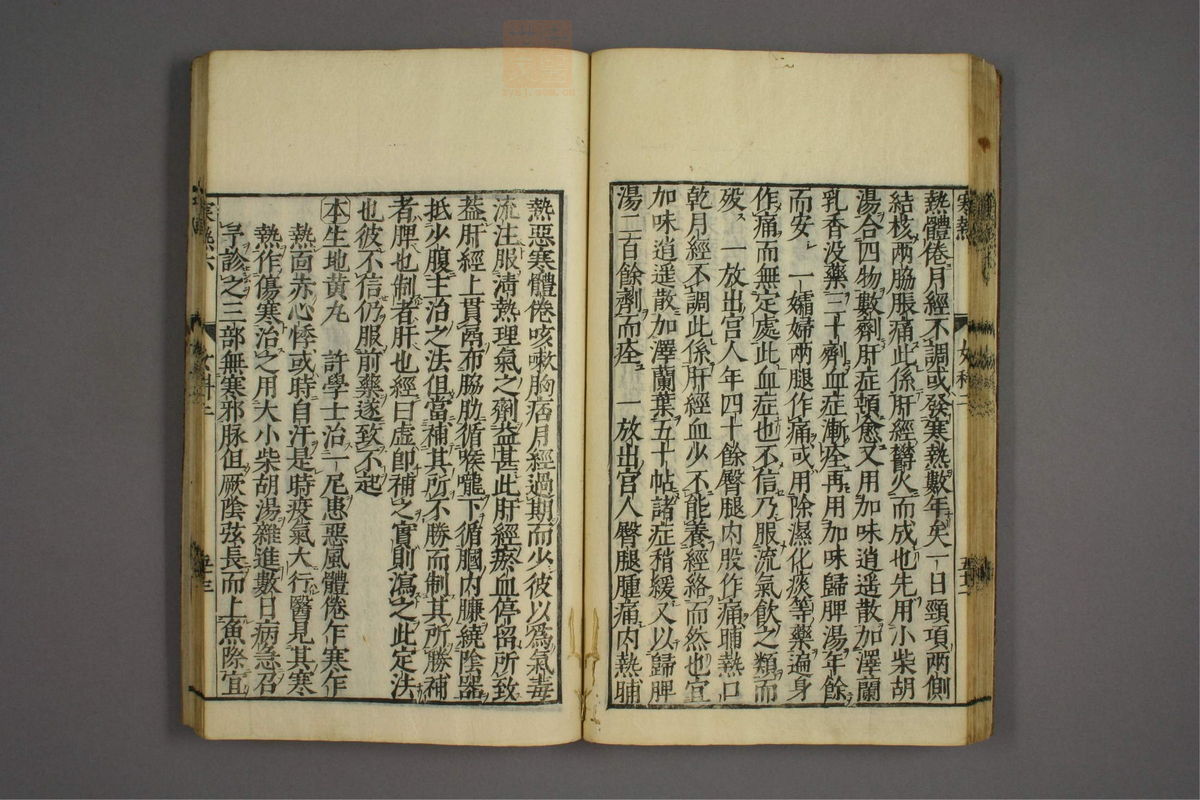 熱體倦月經不調或發寒熱數年矣一日頸項兩側
結核兩脇脹痛此係肝經欝火而成也先用小柴胡
湯合四物數劑肝症頓愈又用加味逍遥散加澤蘭
乳香没藥三十劑血症漸痊再用加味歸脾湯年餘
而安 一孀婦兩腿作痛或用除濕化痰等藥遍身
作痛而無定處此血症也不信乃服流氣飲之類而
殁 一放出宫人年四十餘臀腿内股作痛晡熱口
乾月經不調此係肝經血少不能養經絡而然也宜
加味逍遥散加澤蘭葉五十帖諸症稍緩又以歸脾
湯二百餘劑而痊 一放出宫人臀腿腫痛内熱晡
熱惡寒體倦咳嗽胸痞月經過期而少彼以爲氣毒
流注服清熱理氣之劑益甚此肝經瘀血停留所致
葢肝經上貫膈布脇肋循喉嚨下循膕内臁繞陰器
抵少腹主治之法但當補其所不勝而制其所勝補
者脾也制者肝也經曰虚即補之實則瀉之此定法
也彼不信仍服前藥遂致不起
本生地黄丸 許學士治一尼患惡風體倦乍寒乍
熱面赤心悸或時自汗是時疫氣大行醫見其寒
熱作傷寒治之用大小柴胡湯雜進數日病急召
予診之三部無寒邪脉但厥陰弦長而上魚際宜
寒熱六 女科二 五十三